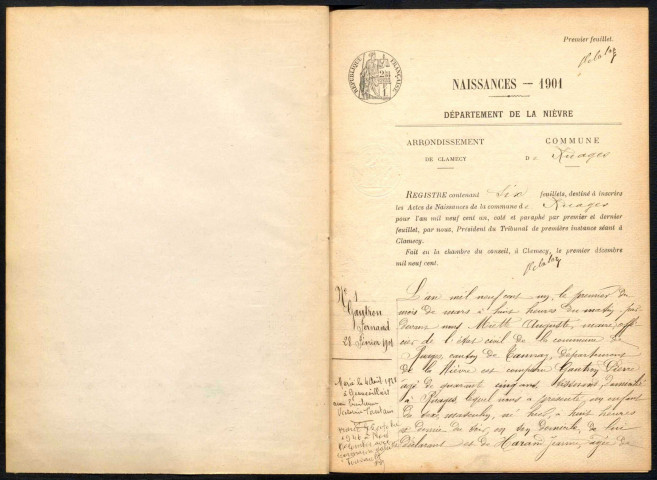 Premier feuillet.
RÉPUBLIQUE FRANÇAISE
NAISSANCES — 1901
DÉPARTEMENT DE LA NIÈVRE
ARRONDISSEMENT
DE CLAMECY
COMMUNE
De Ruages
REGISTRE contenant Six feuillets, destiné à inscrire
les Actes de Naissances de la commune de Ruages
pour l'an mil neuf cent un, coté et paraphé par premier et dernier
feuillet, par nous, Président du Tribunal de première instance séant à
Clamecy.
Fait en la chambre du conseil, à Clamecy, le premier décembre
mil neuf cent.
N° 1
Fernand
28 février 1901
Marié le 4 août
à
L'an mil neuf cent un, le premier du
mois de mars à huit heures du matin par
devant nous Auguste, maire, offi-
cier de l'état civil de la commune de
Ruages, canton de Tannay, département
de la Nièvre est comparu Pierre
âgé de quarante cinq ans, domicilié
à Ruages, lequel nous a présenté un enfant
du sexe masculin, né hier, à huit heures
et demie du soir, en son domicile, de lui
déclarant et de Jeanne, âgée de